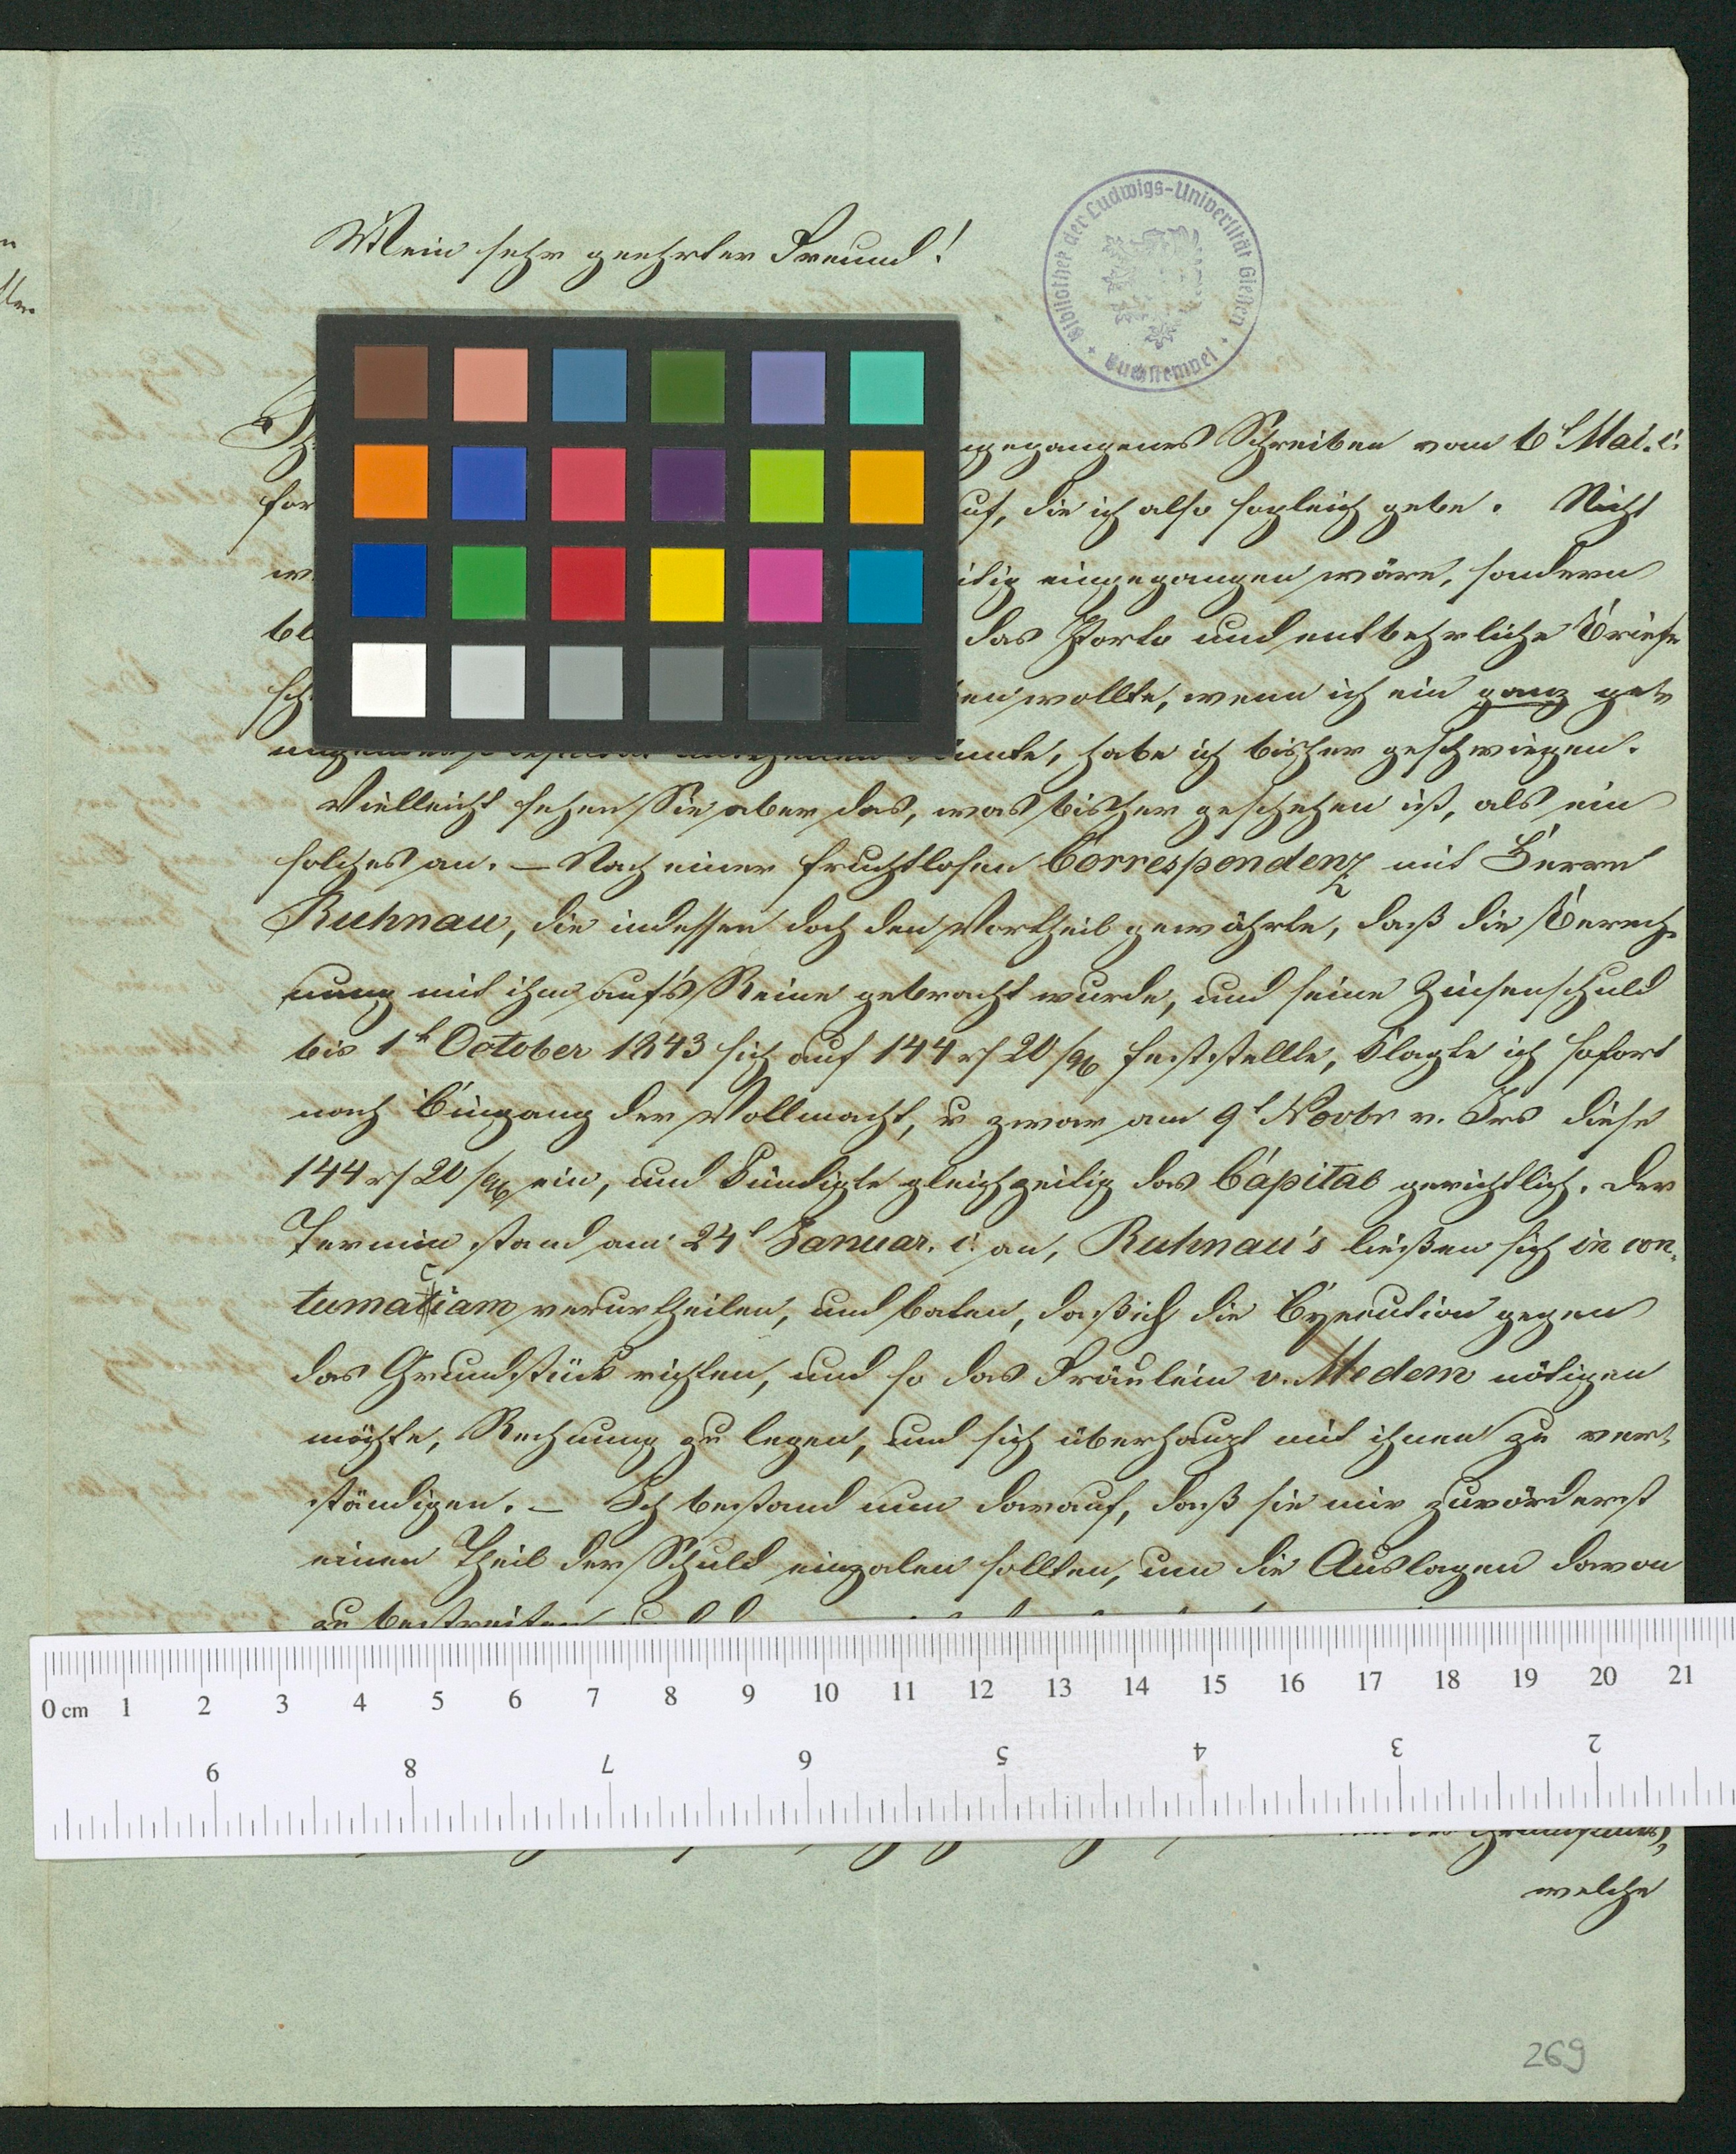 Mein sehr geehrter Freund!
Bibliothek der Ludwigs-Universität Giessen
Buchstempel
gegangenes Schreiben vom 6t Mai. c.
for
auf, die ich also sogleich gebe. Nicht
eingegangen wäre, sondern
das Porto und entbehrliche Briefe
wollte, wenn ich ein ganz ge-
habe ich bisher geschwiegen.
Vielleicht sehen Sie aber das, was bisher geschehen ist, als ein
solches an. – Nach einer fruchtlosen Correspondenz mit Herrn
Ruhnau, die indessen doch den Vortheil gewährte, daß die Berech-
nung mit ihm auf's Reine gebracht wurde, und seine Zinsenschuld
bis 1t October 1843 sich auf 144 rt 20 sg feststellte, klagte ich sofort
nach Eingang der Vollmacht, u zwar am 9t Novbr v. Jrs diese
144 rt 20 sg ein, und kündigte gleichzeitig das Capital gerichtlich. Der
Termin stand am 24t Januar. c. an, Ruhnau's ließen sich in con-
tumaciam verurtheilen, und baten, daß ich die Execution gegen
das Grundstück richten, und so das Fräulein v. Medem nötigen
möchte, Rechnung zu legen, und sich überhaupt mit ihnen zu ver-
ständigen. – Ich bestand nun darauf, daß sie mir zuvörderst
einen Theil der Schuld einzalen sollten, um die Auslagen davon
zu bestreiten
0 cm 1 2 3 4 5 6 7 8 9 10 11 12 13 14 15 16 17 18 19 20 21
9 8 7 6 5 4 3 2
welche
269